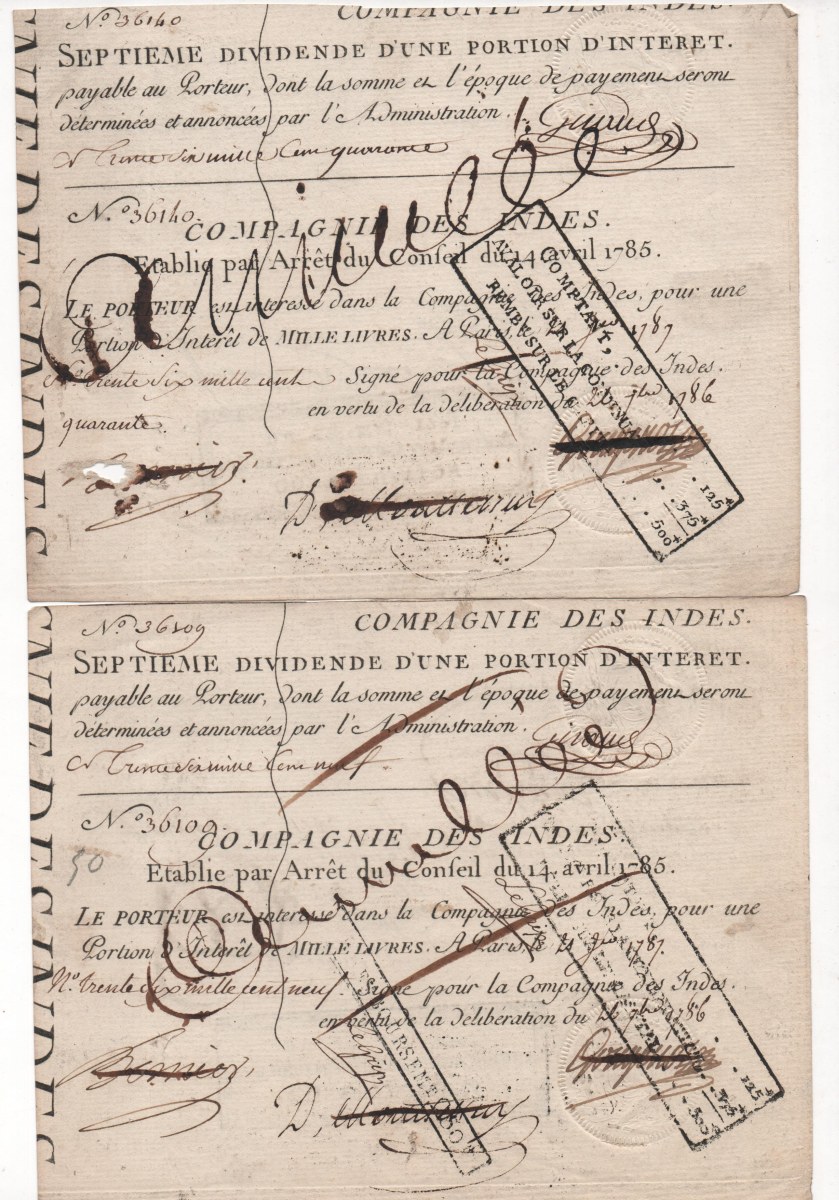 COMPAGNIE DES INDES.
N.º 36140
SEPTIEME DIVIDENDE D'UNE PORTION D'INTERET.
payable au Porteur, dont la somme et l'époque de payement seront
déterminées et annoncées par l'Administration.
Nº trente six mille cent quarante
Giraud
N.º 36140.
COMPAGNIE DES INDES.
Etablie par Arrêt du Conseil du 14 avril 1785.
LE PORTEUR est interessé dans la Compagnie des Indes, pour une
Portion d'Interêt de MILLE LIVRES. A Paris, le 1787
Nº trente six mille cent Signé pour la Compagnie des Indes.
en vertu de la déliberation du 1786
quarante.
Annullé
COMPTANT,
REMB. SUR LES
. 125ᵗᵗ
. 375
. 500ᵗᵗ
NIE DES INDES
N.º 36109
COMPAGNIE DES INDES.
SEPTIEME DIVIDENDE D'UNE PORTION D'INTERET.
payable au Porteur, dont la somme et l'époque de payement seront
déterminées et annoncées par l'Administration.
Nº trente six mille cent neuf
Giraud
N.º 36109
COMPAGNIE DES INDES.
50
Etablie par Arrêt du Conseil du 14 avril 1785.
LE PORTEUR est interessé dans la Compagnie des Indes, pour une
Portion d'Interêt de MILLE LIVRES. A Paris, le 1787.
Nº trente six mille cent neuf. Signé pour la Compagnie des Indes.
en vertu de la déliberation du 1786
Annullé
Bernier
. 125ᵗᵗ
. 375
NIE DES INDES